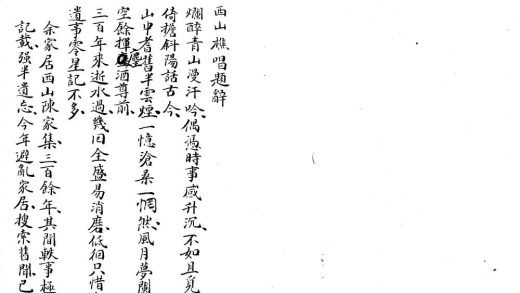 西山樵唱題辭
爛醉青山漫汗吟偶憑時事感升沉不如且覓
倚擔斜陽話古今
山中耆舊半雲煙一憶滄桑一惘然風月夢闌
空餘揮麈酒尊前
三百年來逝水過幾回全盛易消磨低徊只惜
遺事零星記不多
余家居西山陳家集三百餘年其間軼事極
記載強半遺忘今年避亂家居搜索舊聞已